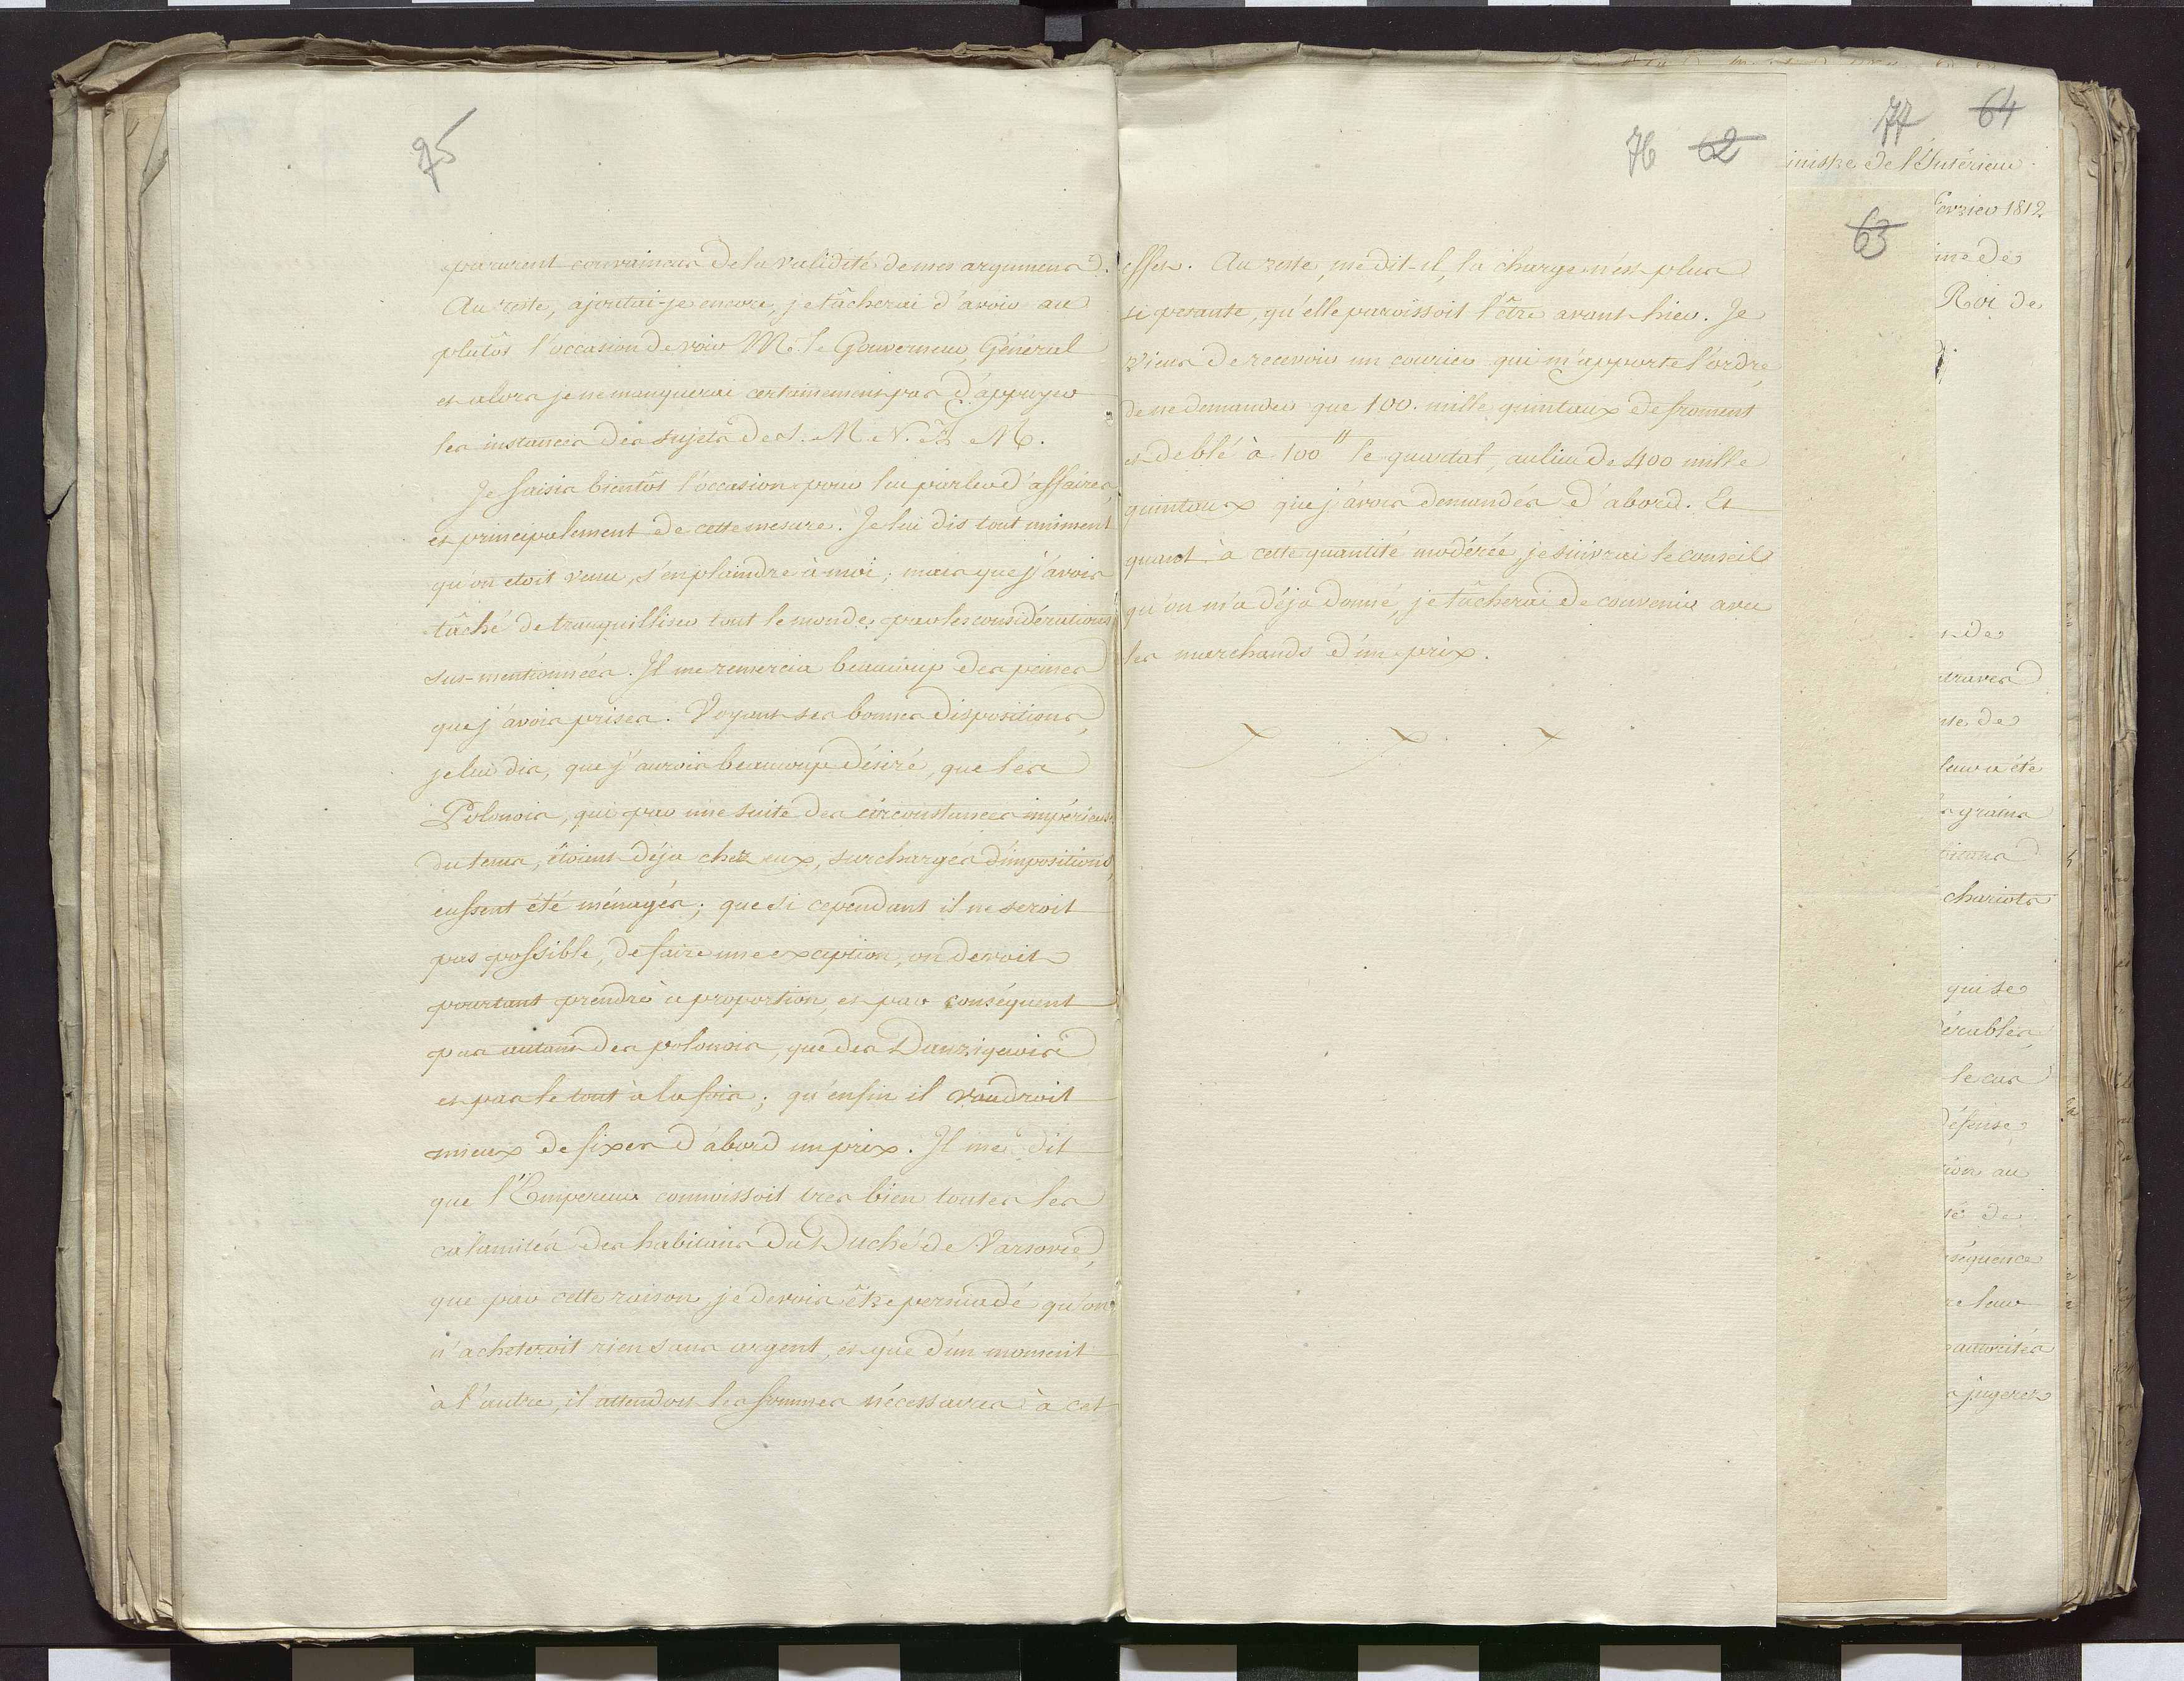 75
parurent convaincus de la validité de mes argumens.
Au reste, ajoutai-je encore, je tâcherai d'avoir au
plutôt l'occasion de voir Mr. le Gouverneur Général
et alors je ne manquerai certainement pas d'appuyer
les instances des sujets de S. M. N. T. M.
Je saisis bientôt l'occasion pour lui parler d'affaires,
et principalement de cette mesure. Je lui dis tout uniment
qu'on etoit venu, s'en plaindre à moi; mais que j'avois
tâché de tranquilliser tout le monde, par les considérations
sus-mentionnées. Il me remercia beaucoup des peines
que j'avois prises. Voyant ses bonnes dispositions,
je lui dis, que j'aurois beaucoup désiré, que les
Polonois, qui par une suite des circonstances impérieuses
du tems, étoient déja chez eux, surchargés d'impositions,
eussent été ménagés; que si cependant il ne seroit
pas possible, de faire une exception, on devroit
pourtant prendre à proportion, et par conséquent
pas autant des polonois, que des Danzigwois
et pas le tout à la fois; qu'enfin il vaudroit
mieux de fixer d'abord un prix. Il me dit
que l'Empereur connoissoit tres bien toutes les
calamités des habitans du Duché de Varsovie,
que par cette raison je devois être persuadé qu'on
n'acheteroit rien sans argent, et que d'un moment
à l'autre, il attendoit les sommes nécessaires à cet
76 62
effet. Au reste, me dit-il, la charge n'est plus
si pesante, qu'elle paroissoit l'être avant hier. Je
viens de recevoir un courier qui m'apporte l'ordre,
de ne demander que 100. mille quintaux de froment
et de blé à 100 le quintal, au lieu de 400 mille
quintaux que j'avois demandés d'abord. Et
quant à cette quantité modérée, je suivrai le conseil
qu'on m'a déja donné, je tâcherai de convenir avec
les marchands d'un prix.
63
77 64
inistre de l'Intérieur
Fevrier 1812
Roi de
de
nte de
leur a été
grains
chariots
qui se
érables
le cas
défense
ion au
té de
séquence
re leur
autorités
jugerez